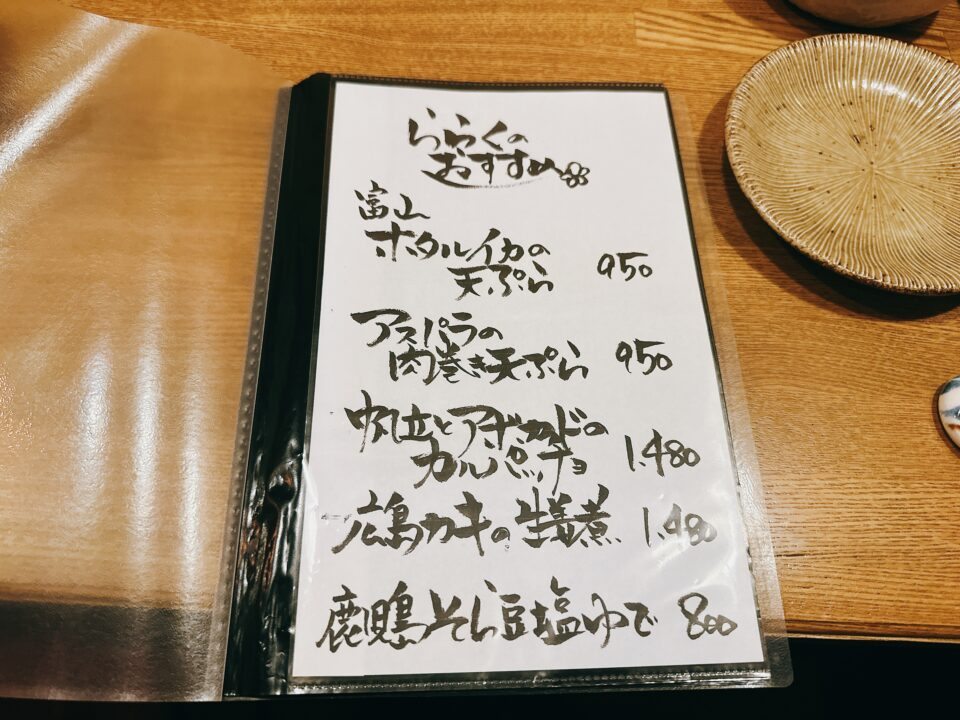 ららくの
おすすめ
富山
ホタルイカの
天ぷら 950
アスパラの
肉巻き天ぷら 950
帆立とアボカドの
カルパッチョ 1.480
広島カキの生姜煮 1.480
鹿児島そら豆塩ゆで 800